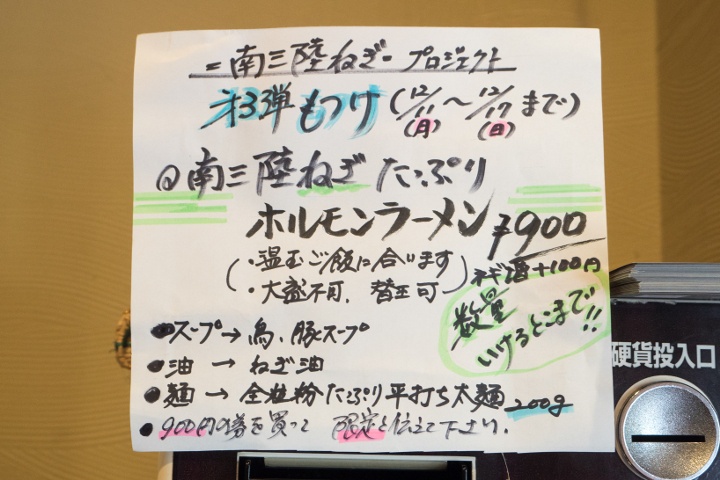 =南三陸ねぎープロジェクト
才3弾もつけ(12/11(月)〜12/17(日)まで)
◎南三陸ねぎたっぷり
ホルモンラーメン ¥900
(・温玉ご飯に合います
・大盛不可、替玉可)
ネギ増+100円
数量
いけるとこまで!!
●スープ→鳥、豚スープ
●油→ねぎ油
●麺→全粒粉たっぷり平打ち太麺200g
●900円の券を買って 限定と伝えて下さい.
硬貨投入口